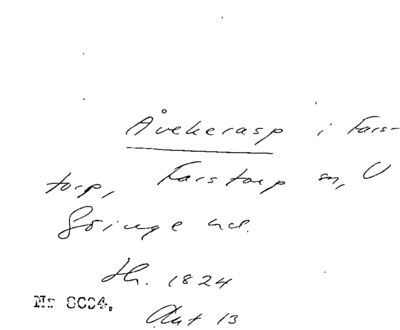 Åvekerasp i Fars-
torp, Farstorp sn, V
Göinge hd.
Lh. 1824
Nr 8004. Akt 13